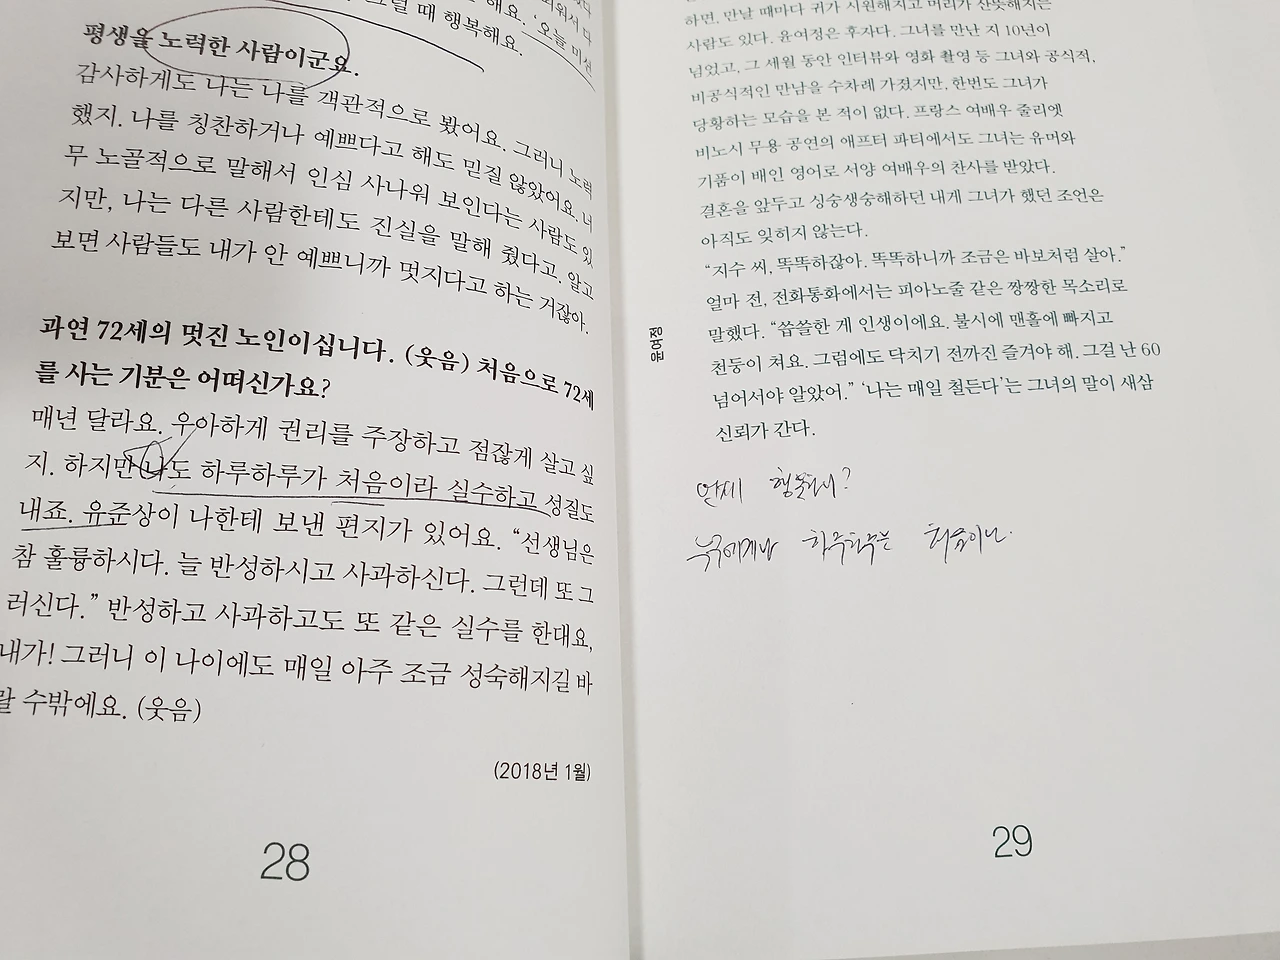 해요. '오늘 미션
그럴 때 행복해요.
평생을 노력한 사람이군요.
감사하게도 나는 나를 객관적으로 봤어요. 그러니 노력
했지. 나를 칭찬하거나 예쁘다고 해도 믿질 않았어요. 너
무 노골적으로 말해서 인심 사나워 보인다는 사람도 있
지만, 나는 다른 사람한테도 진실을 말해 줬다고. 알고
보면 사람들도 내가 안 예쁘니까 멋지다고 하는 거잖아.
과연 72세의 멋진 노인이십니다. (웃음) 처음으로 72세
를 사는 기분은 어떠신가요?
매년 달라요. 우아하게 권리를 주장하고 점잖게 살고 싶
지. 하지만 나도 하루하루가 처음이라 실수하고 성질도
내죠. 유준상이 나한테 보낸 편지가 있어요. “선생님은
참 훌륭하시다. 늘 반성하시고 사과하신다. 그런데 또 그
러신다.” 반성하고 사과하고도 또 같은 실수를 한대요,
내가! 그러니 이 나이에도 매일 아주 조금 성숙해지길 바
랄 수밖에요. (웃음)
(2018년 1월)
28
하면, 만날 때마다 귀가 시원해지고 머리가 산뜻해지는
사람도 있다. 윤여정은 후자다. 그녀를 만난 지 10년이
넘었고, 그 세월 동안 인터뷰와 영화 촬영 등 그녀와 공식적,
비공식적인 만남을 수차례 가졌지만, 한번도 그녀가
당황하는 모습을 본 적이 없다. 프랑스 여배우 줄리엣
비노시 무용 공연의 애프터 파티에서도 그녀는 유머와
기품이 배인 영어로 서양 여배우의 찬사를 받았다.
결혼을 앞두고 싱숭생숭해하던 내게 그녀가 했던 조언은
아직도 잊히지 않는다.
“지수 씨, 똑똑하잖아. 똑똑하니까 조금은 바보처럼 살아.”
얼마 전, 전화통화에서는 피아노줄 같은 짱짱한 목소리로
말했다. “씁쓸한 게 인생이에요. 불시에 맨홀에 빠지고
천둥이 쳐요. 그럼에도 닥치기 전까진 즐겨야 해. 그걸 난 60
넘어서야 알았어.” ‘나는 매일 철든다’는 그녀의 말이 새삼
신뢰가 간다.
윤여정
언제
누구에게나 하루하루는 처음이니.
29